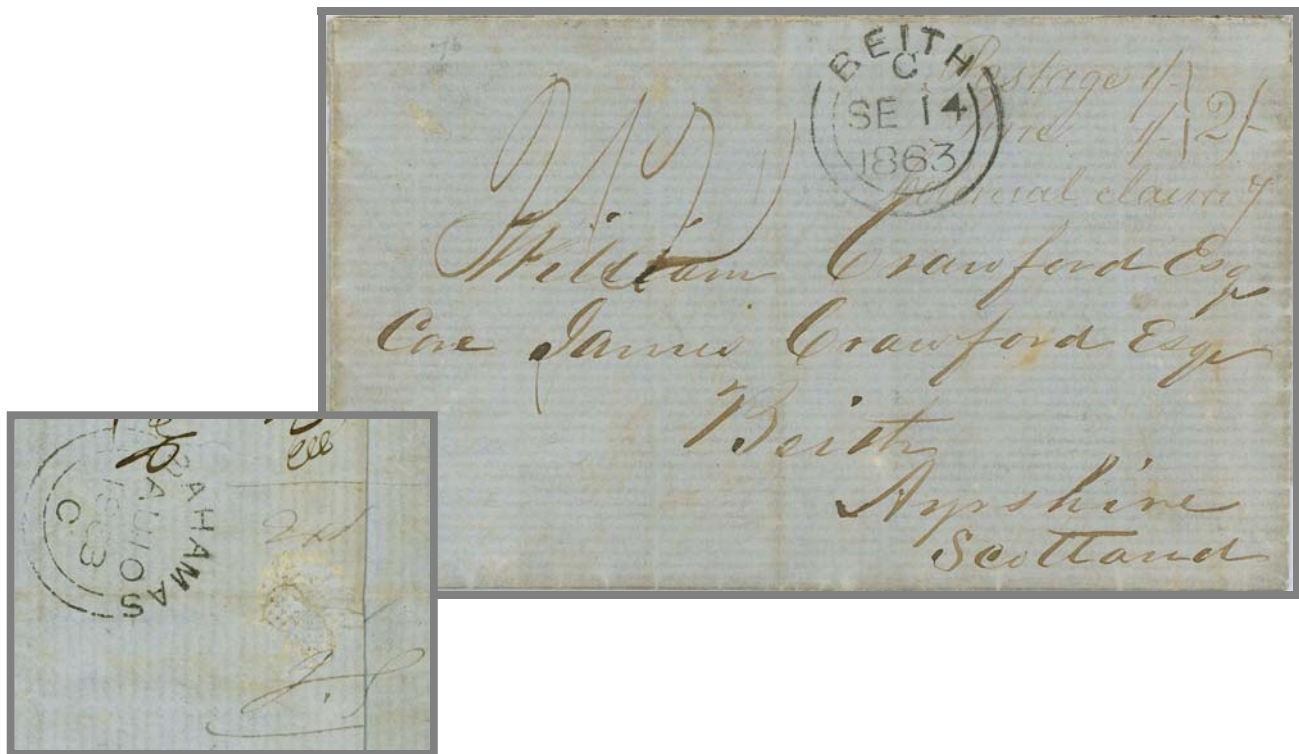 BEITH
C
SE 14
1863
Postage 1/-
Fine 1/- } 2/-
Colonial claim
William Crawford Esq
Care James Crawford Esqr
Beith
Ayrshire
Scotland
BAHAMAS
AU 10
1863
C